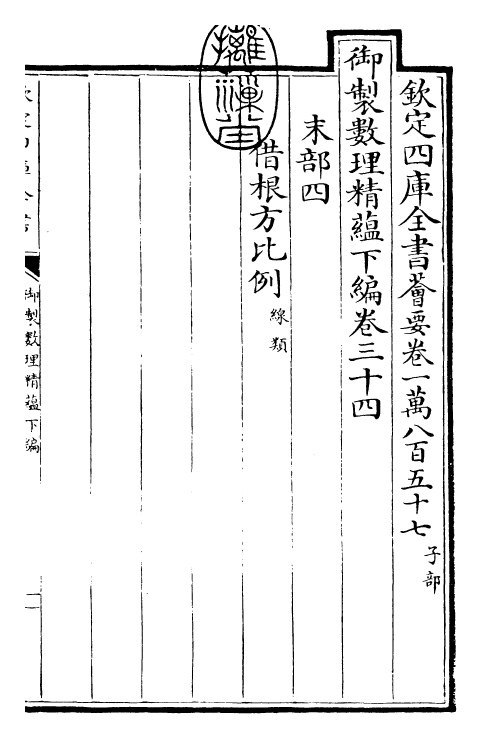 欽定四庫全書薈要卷一萬八百五十七 子部
御製數理精蘊下編卷三十四
末部四
借根方比例 線類
御製數理精蘊下編